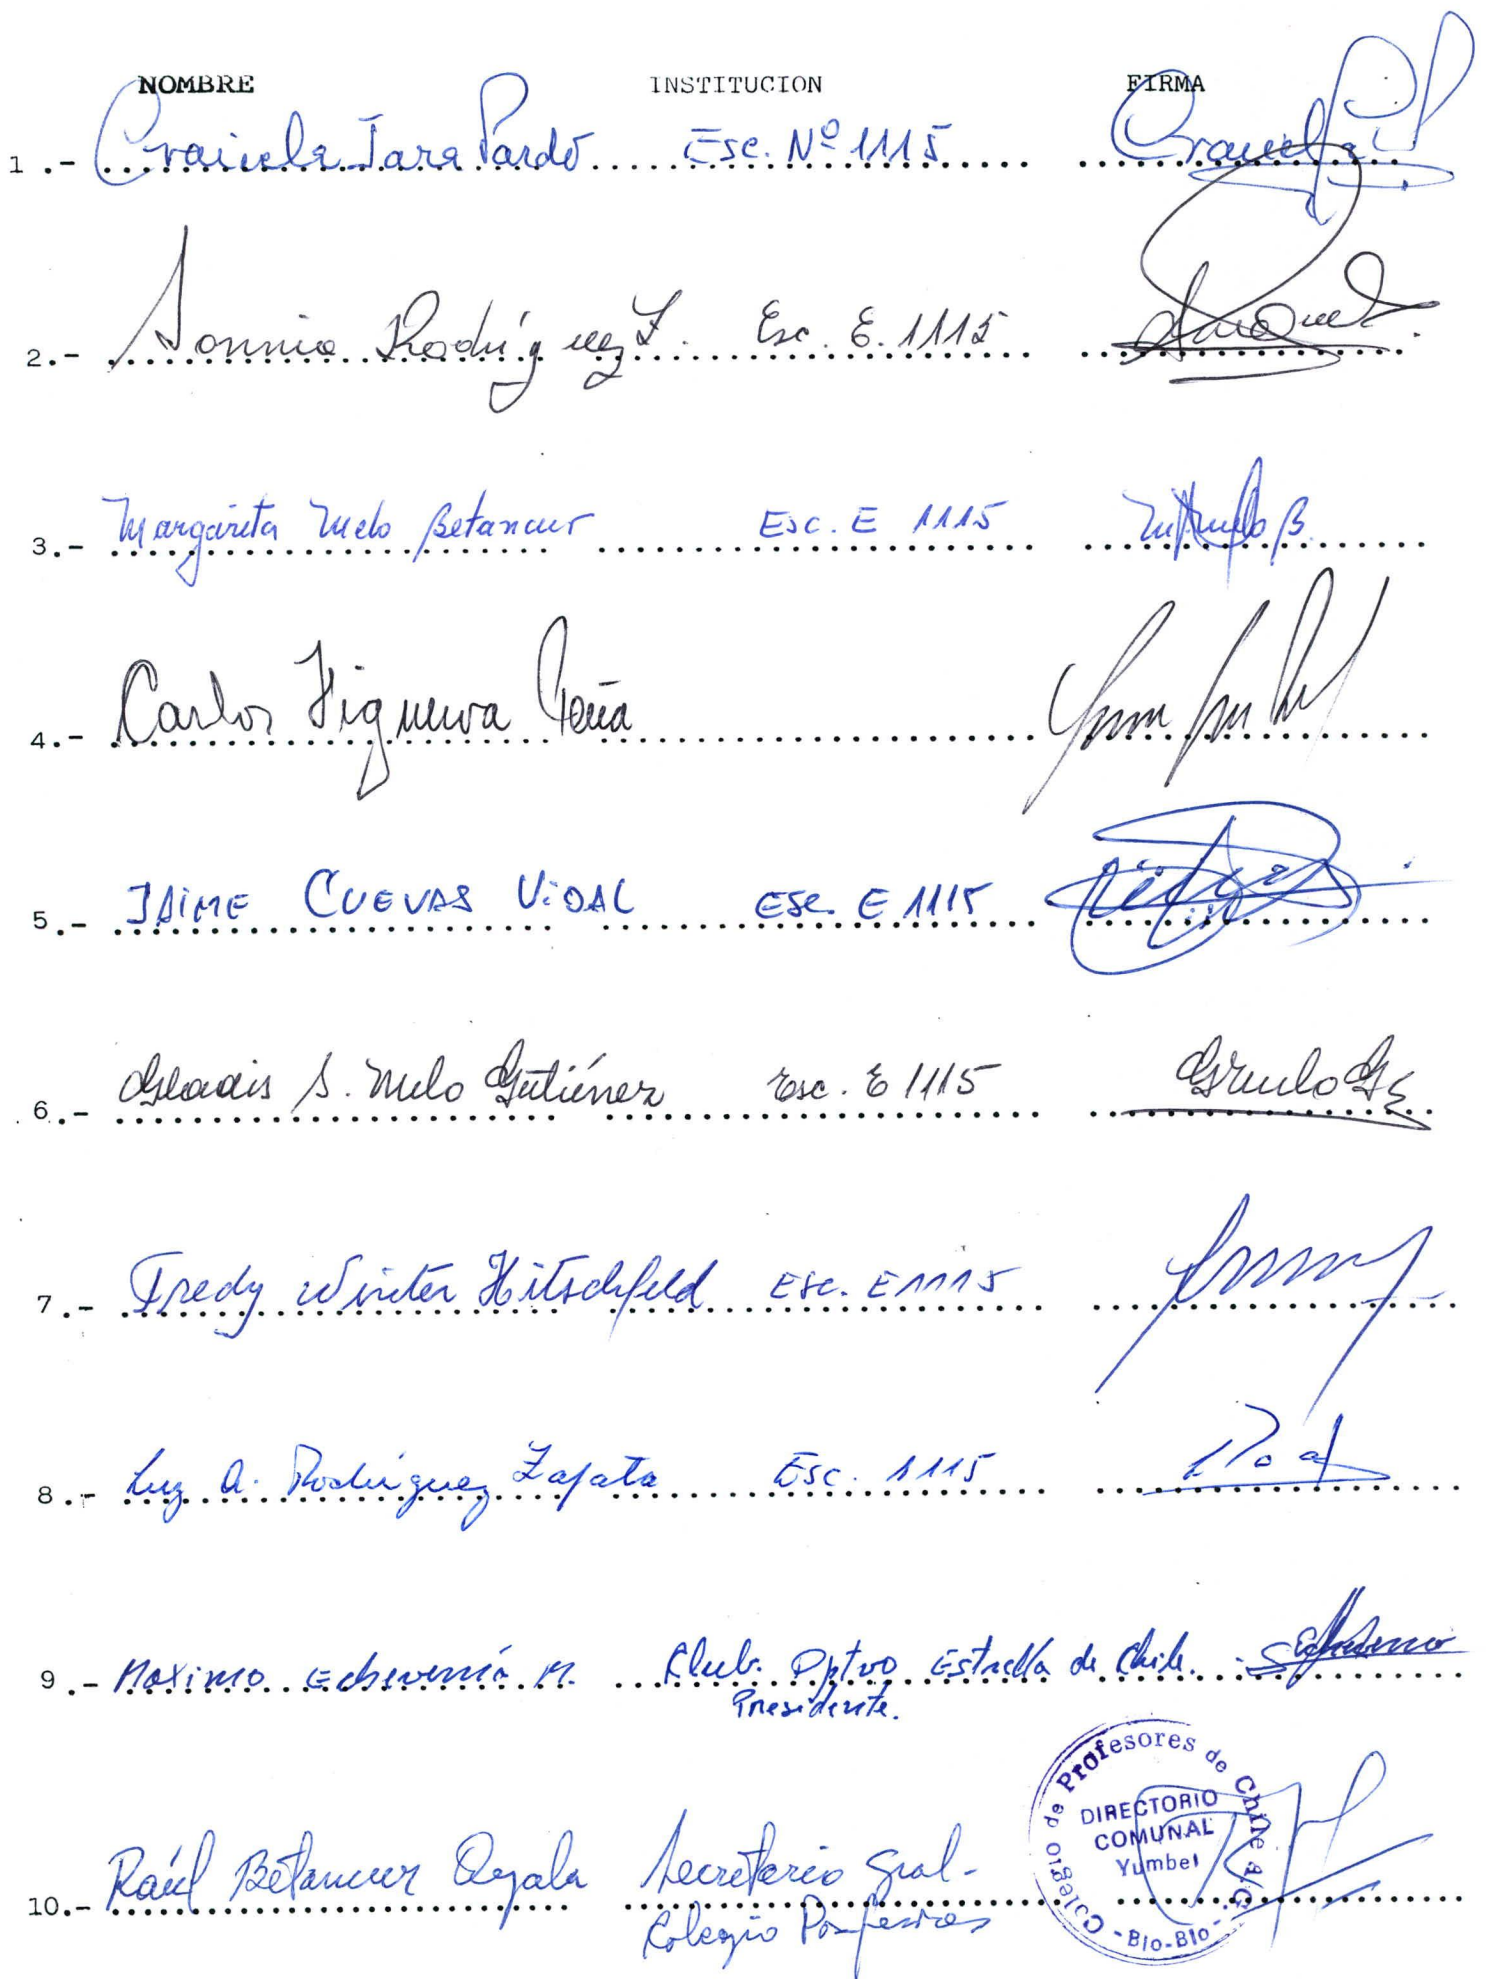 NOMBRE INSTITUCION FIRMA
1.- Graciela Jara Pardo Esc. Nº 1115
2.- Sonnia Rodríguez Z. Esc. E. 1115
3.- Margarita Melo Betancur Esc. E 1115
4.- Carlos Higuera Peña
5.- JAIME CUEVAS VIDAL ESC. E 1115
6.- Gladis S. Melo Gutiérrez Esc. E 1115
7.- Fredy Winter Hitschfeld Esc. E 1115
8.- Luz A. Rodríguez Zapata Esc. 1115
9.- Maximo Echeverría M. Club. Dptvo Estrella de Chile.
Presidente.
10.- Raúl Betancur Ayala Secretario Gral-
Colegio Profesores
Colegio de Profesores de Chile A.G.
DIRECTORIO
COMUNAL
Yumbel
- Bio-Bio -